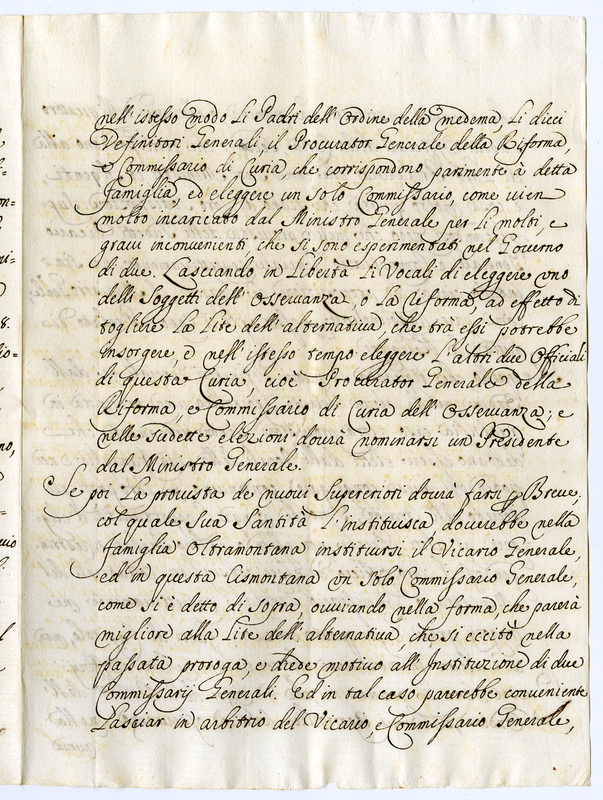 nell'istesso modo Li Padri dell'Ordine della medema, Li dieci
Definitori Generali, il Procurator Generale della Riforma,
e Commissario di Curia, che corrispondono parimente à detta
famiglia, ed eleggere un solo Commissario, come vien
molto incaricato dal Ministro Generale per Li molti, e
gravi inconvenienti che si sono esperimentati nel Governo
di due. Lasciando in Libertà Li Vocali di eleggere uno
delli Soggetti dell'Osservanza, ò La Riforma, ad effetto di
togliere La Lite dell'alternativa, che trà essi potrebbe
insorgere, e nell'istesso tempo eleggere L'altri due Officiali
di questa Curia, cioè Procurator Generale della
Riforma, e Commissario di Curia dell'Osservanza; e
nelle sudette elezioni dovrà nominarsi un Presidente
dal Ministro Generale.
Se poi La provista de nuovi Supereriori dovrà farsi p Breve,
col quale Sua Santità L'instituisca doverebbe nella
famiglia Oltramontana instituirsi il Vicario Generale,
ed in questa Cismontana un solo Commissario Generale,
come si è detto di sopra, ovviando nella forma, che parerà
migliore alla Lite dell'alternativa, che si eccitò nella
passata proroga, e diede motivo all'Instituzione di due
Commissarij Generali. Ed in tal caso parerebbe conveniente
Lasciar in arbitrio del Vicario, e Commissario Generale,